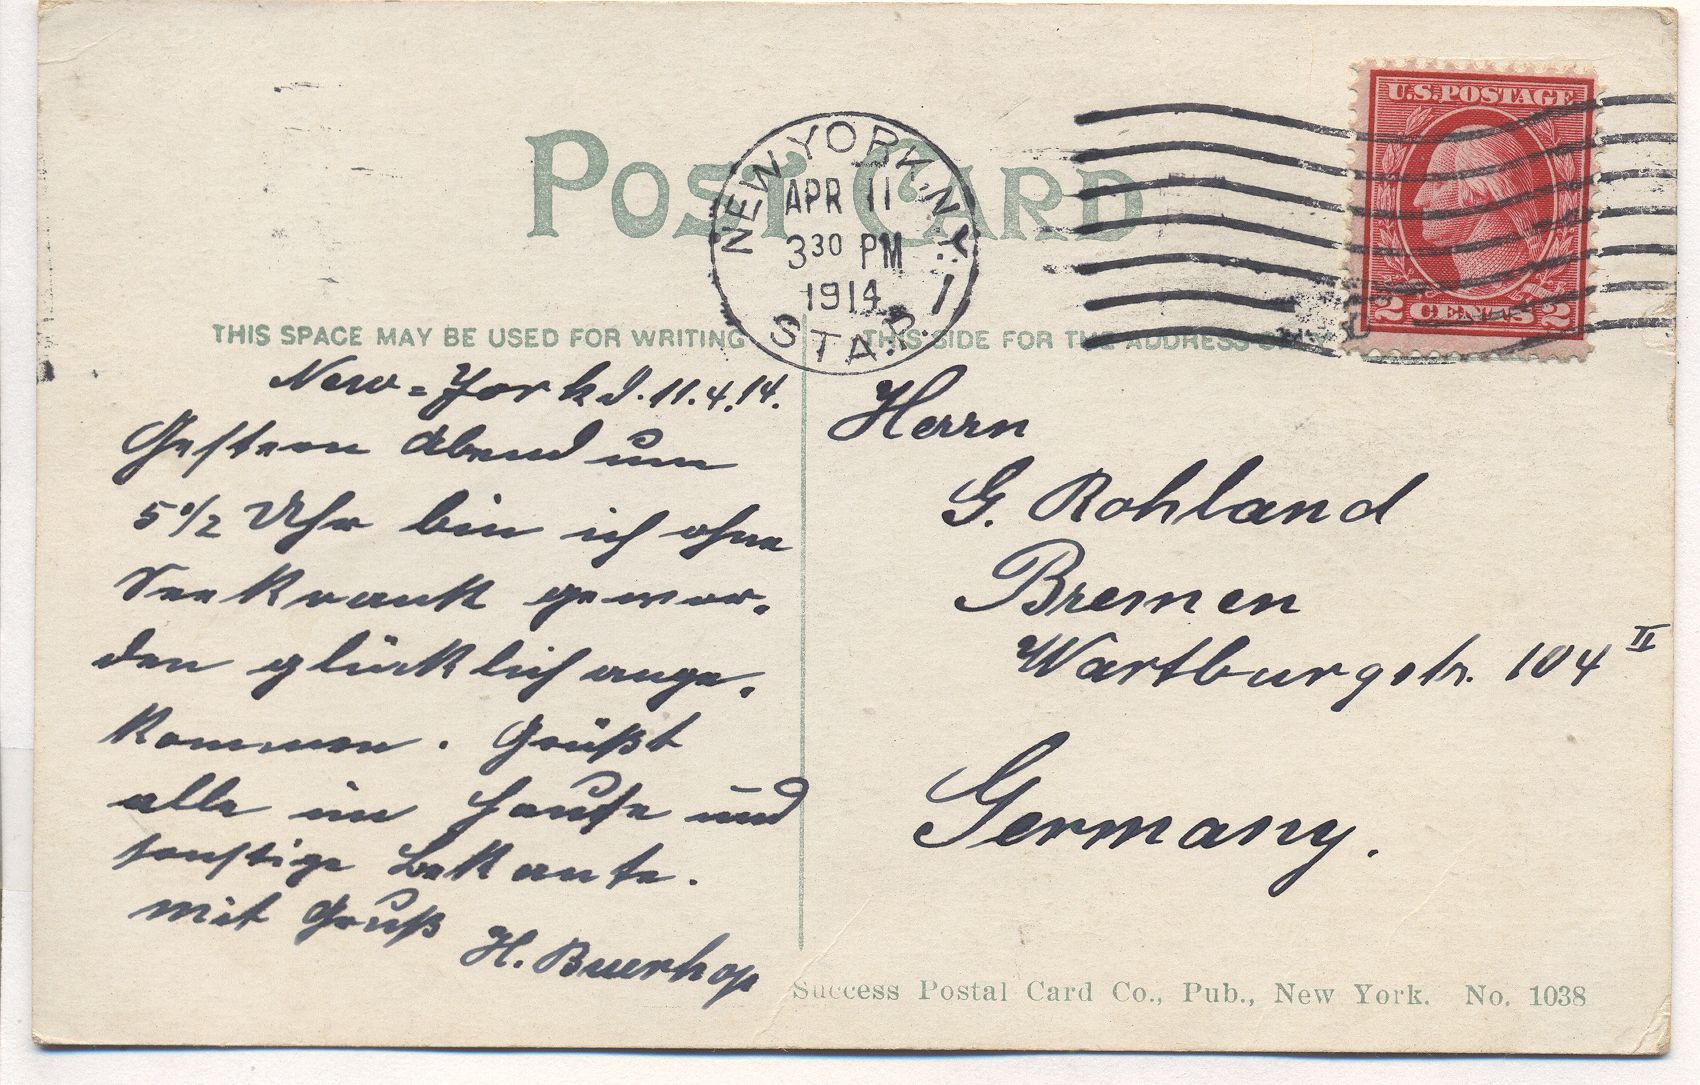 POST CARD
NEW YORK, N.Y.
APR 11
3 30 PM
1914
STA. P.
1
U.S. POSTAGE
2 CENTS 2
THIS SPACE MAY BE USED FOR WRITING
THIS SIDE FOR THE ADDRESS
New=York d. 11.4.14.
Gestern Abend um
5 1/2 Uhr bin ich ohne
Seekrank gewor-
den glücklich ange-
kommen. Grüßt
alle im Hause und
sonstige Bekante.
mit Gruß
H. Buerhop
Herrn
G. Rohland
Bremen
Wartburgstr. 104 II
Germany.
Success Postal Card Co., Pub., New York. No. 1038